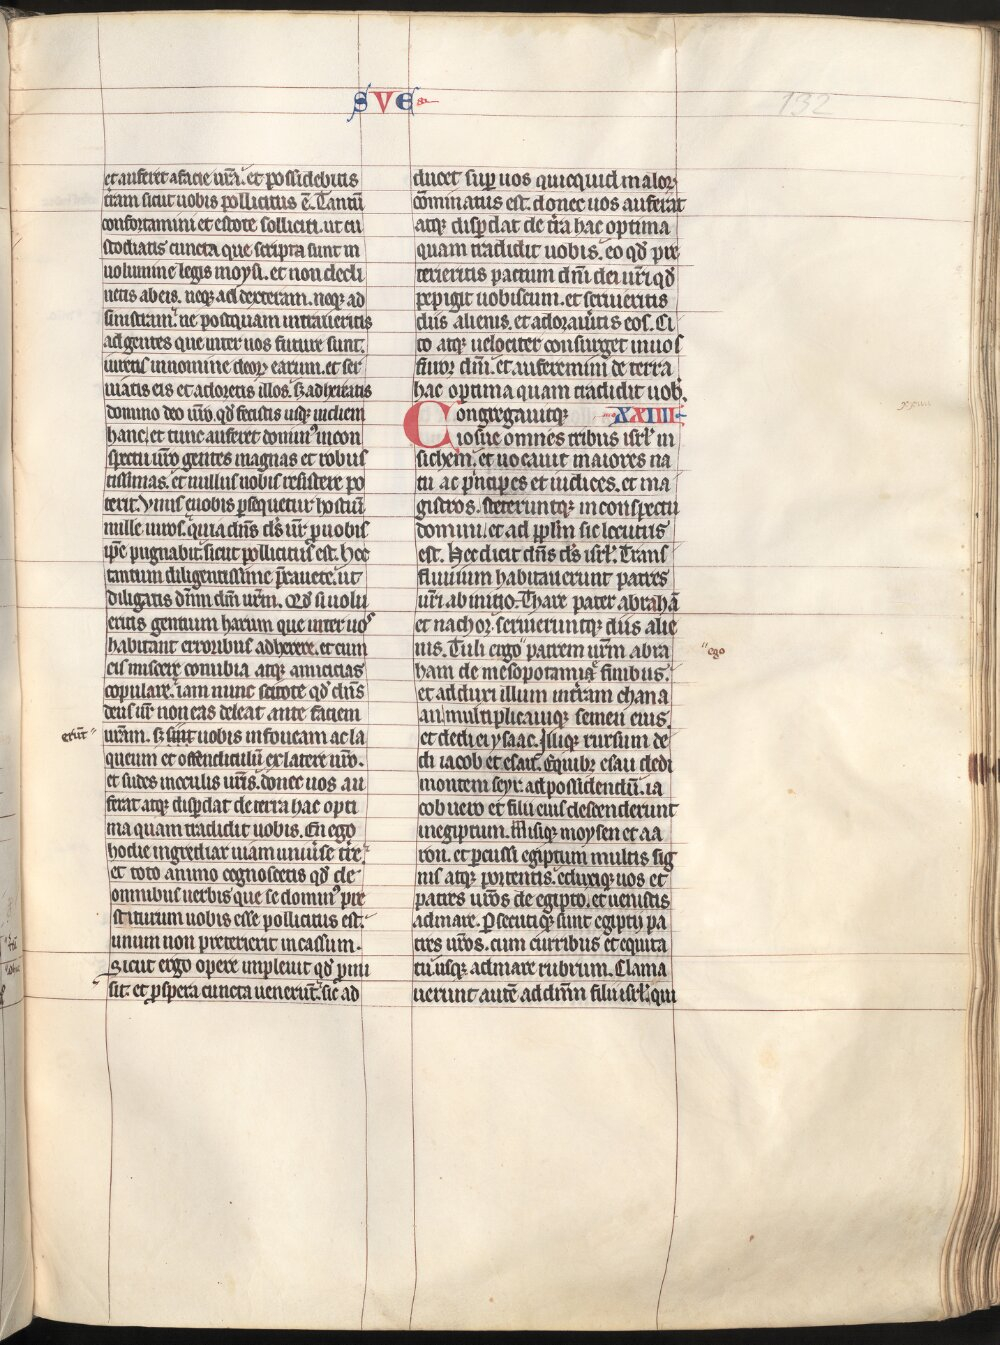 SVE
132
et auferet a facie ur̄a. et possidebitis
t̄ram sicut uobis pollicitus ē. Tantū
confortamini et estote solliciti. ut cu
stodiatis cuncta que scripta sunt in
uolumine legis moysi. et non decli
netis ab eis. neq; ad dexteram. neq; ad
sinistram. ne postquam intraueritis
ad gentes que inter uos future sunt.
iuretis in nomine deoꝝ earum. et ser
uiatis eis et adoretis illos. sꝫ adhereatis
domino deo ur̄o. qd̄ fecistis usq; in diem
hanc. et tunc auferet dominꝰ in con
spectu ur̄o gentes magnas et robus
tissimas. et nullus uobis resistere po
terit. Vnus e uobis ꝑsequetur hostiū
mille uiros. quia dn̄s ds̄ ur̄ ꝓ uobis
ip̄e pugnabit. sicut pollicitus est. Hoc
tantum diligentissime p̄cauete. ut
diligatis dn̄m dm̄ ur̄m. Qd̄ si uolu
eritis gentium harum que inter uos
habitant erroribus adherere. et cum
eis miscere conubia atq; amicicias
copulare. iam nunc scitote qd̄ dn̄s
deus ur̄ non eas deleat ante faciem
erūt
ur̄am. sꝫ sint uobis in foueam ac la
queum et offendiculū ex latere ur̄o.
et sudes in oculis ur̄is. donec uos au
ferat atq; disꝑdat de terra hac opti
ma quam tradidit uobis. En ego
hodie ingrediar uiam uniuerse t̄re.
et toto animo cognoscetis qd̄ de
omnibus uerbis que se dominꝰ pre
stiturum uobis esse pollicitus est.
unum non preterierit incassum.
Sicut ergo opere impleuit qd̄ ꝓmi
sit. et ꝓspera cuncta uenerūt. sic ad
ducet suꝑ uos quicquid maloꝝ
cōminatus est. donec uos auferat
atq; disꝑdat de t̄ra hac optima
quam tradidit uobis. eo qd̄ pre
terieritis pactum dn̄i dei ur̄i qd̄
pepigit uobiscum. et seruieritis
diis alienis. et adorauītis eos. Ci
to atq; uelociter consurget in uos
furor dn̄i. et auferemini de terra
hac optima quam tradidit uob̄.
Congregauitq; XXIIII
iosue omnes tribus isrl̄ in
sichem. et uocauit maiores na
tu ac p̄ncipes et iudices. et ma
gistros. steteruntq; in conspectu
domini. et ad ppl̄m sic locutus
est. Hec dicit dn̄s ds̄ isrl̄. Trans
fluuium habitauerunt patres
ur̄i. ab initio. Thare pater abrahā
et nachor. seruieruntq; diis alie
nis. Tuli ergo patrem ur̄m abra
ego
ham de mesopotamię finibus.
et adduxi illum in t̄ram chana
an. multiplicauiq; semen eius.
et dedi ei ysaac. Illiq; rursum de
di iacob et esau. E quibꝫ esau dedi
montem seyr. ad possidendū. ia
cob uero et filii eius descenderunt
in egiptum. Misiq; moysen et aa
ron. et ꝑcussi egiptum multis sig
nis atq; portentis. eduxiq; uos et
patres ur̄os de egipto. et uenistis
ad mare. Ꝑsecutiq; sunt egiptii pa
tres ur̄os. cum curribus et equita
tu usq; ad mare rubrum. Clama
uerunt autē ad dn̄m filii isrl̄. qui